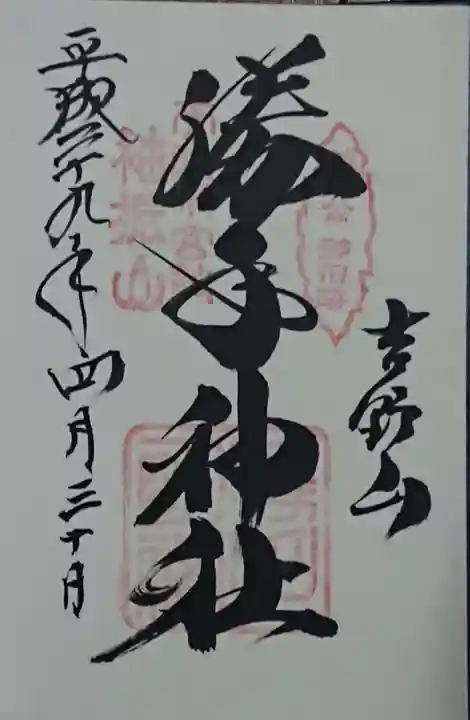 吉野山
勝手神社
平成二十九年四月三十日
袖振山